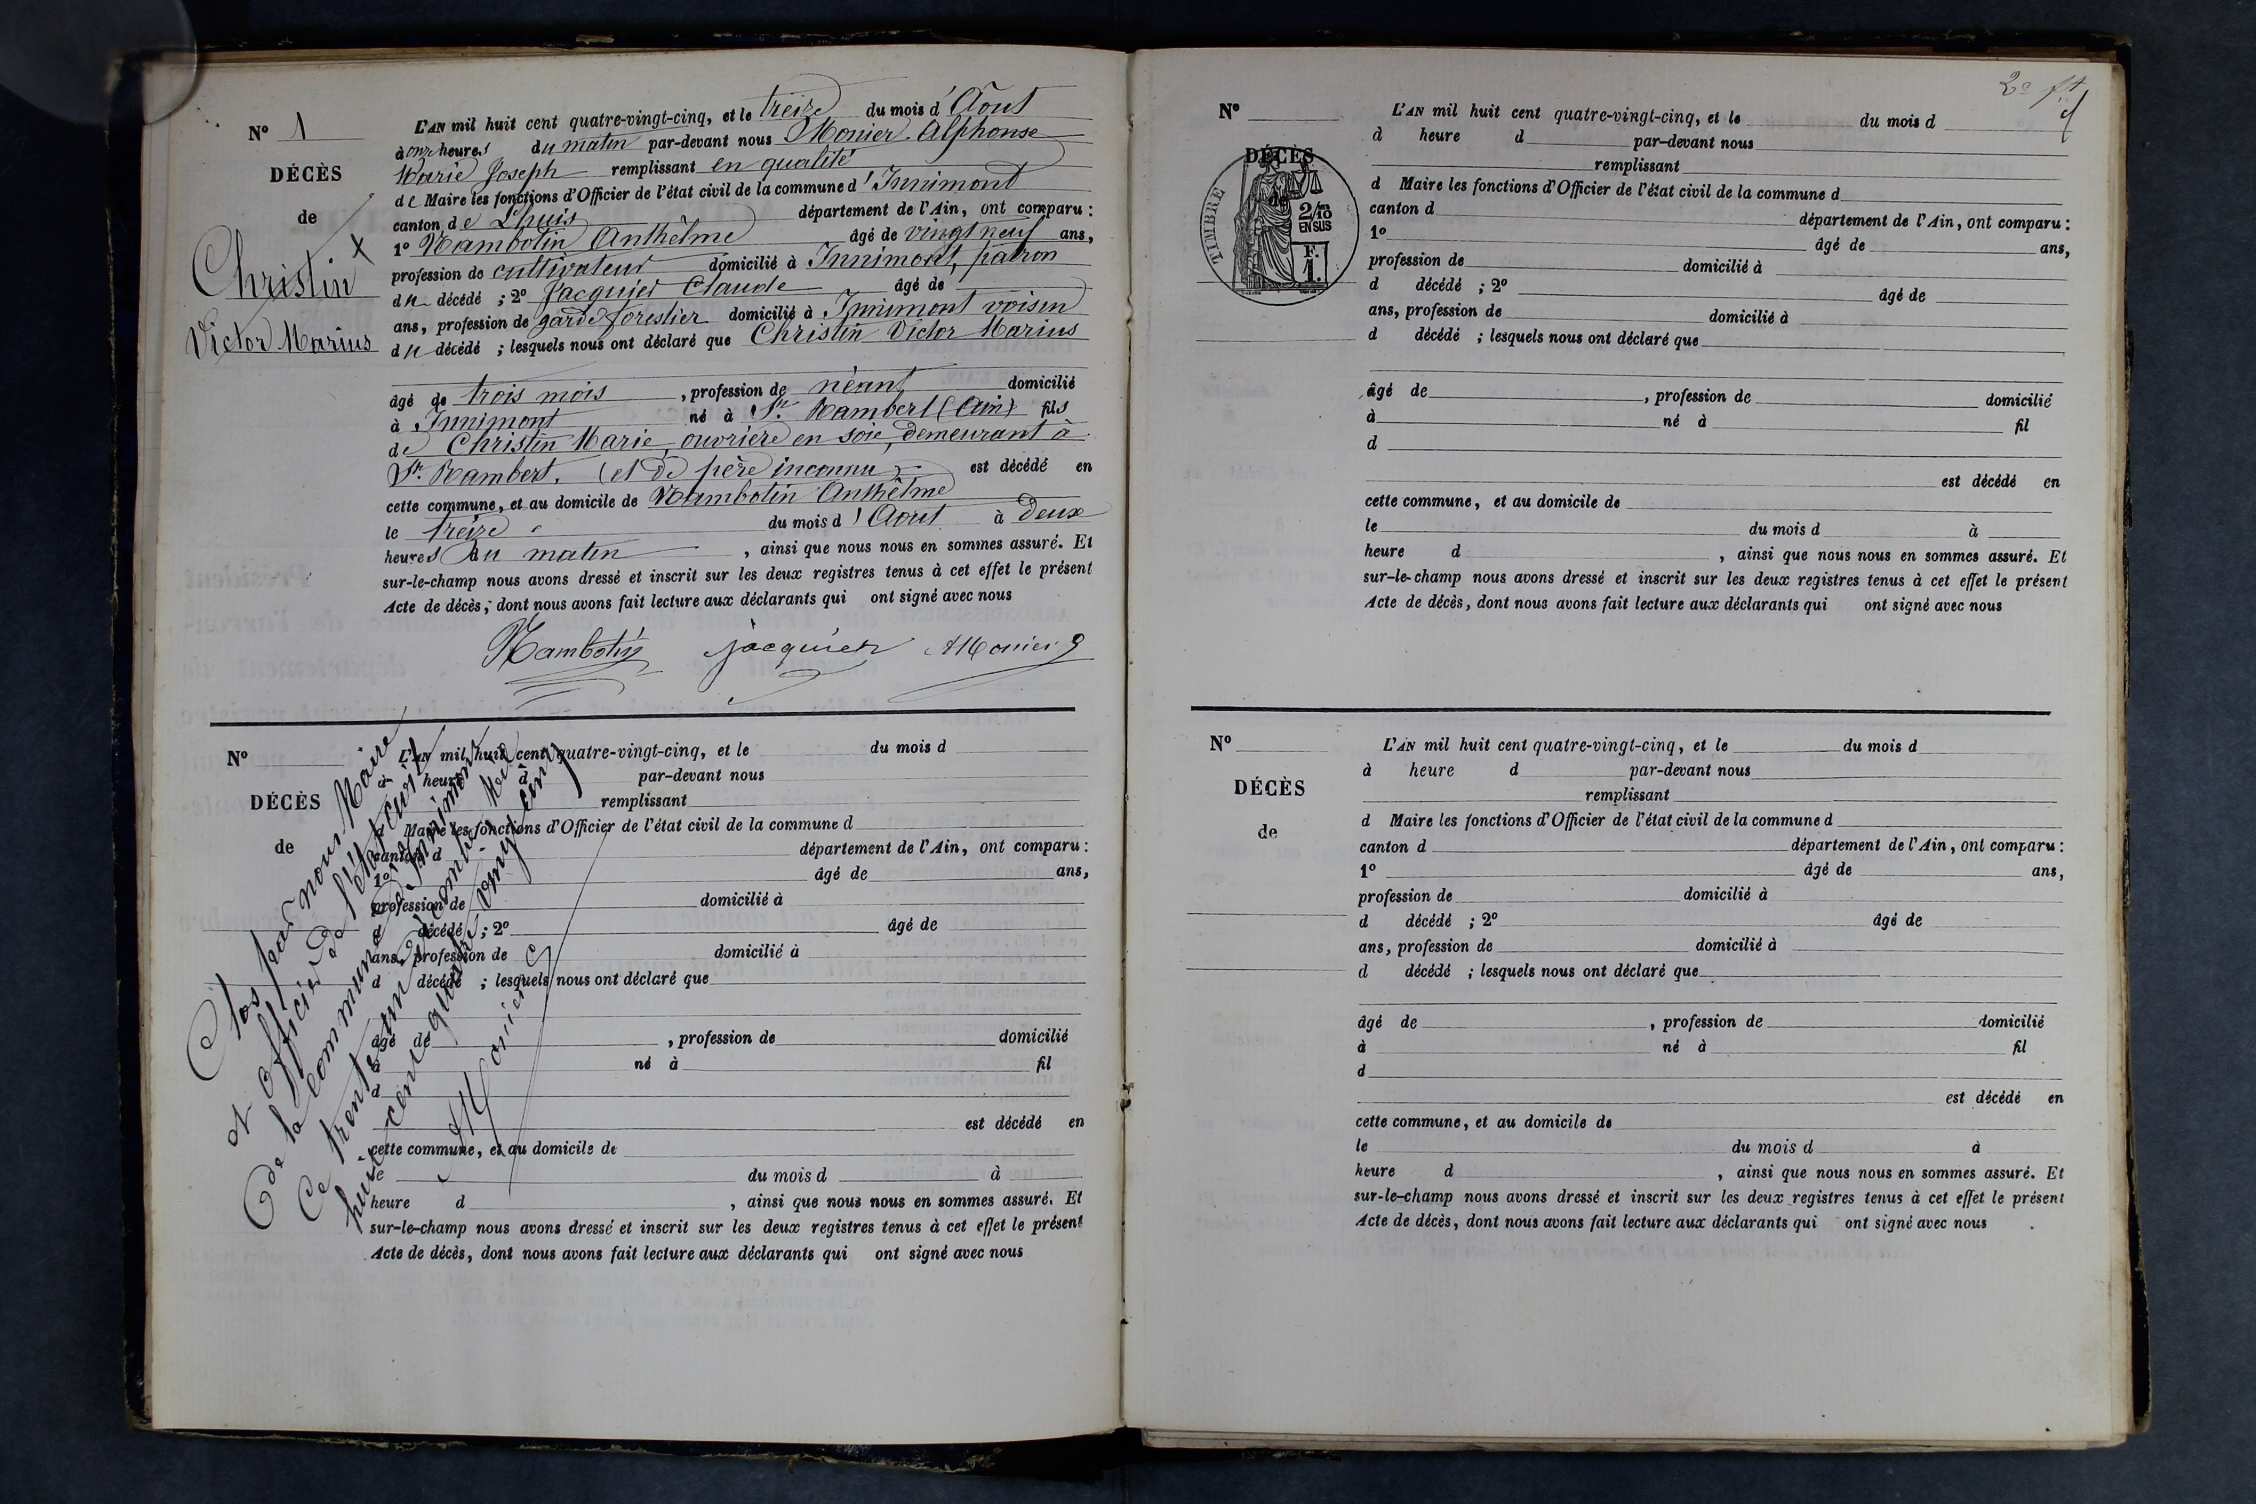 N° 1
DÉCÈS
de
Christin
Victor Marius
L'AN mil huit cent quatre-vingt-cinq, et le treize du mois d'Aout
à onze heures du matin par-devant nous Monier Alphonse
Marie Joseph remplissant en qualité
de Maire les fonctions d'Officier de l'état civil de la commune d'Innimont
canton de Lhuis département de l'Ain, ont comparu :
1° Nambotin Anthelme âgé de vingt neuf ans,
profession de cultivateur domicilié à Innimont, patron
du décédé ; 2° Jacquier Claude âgé de
ans, profession de garde forestier domicilié à Innimont voisin
du décédé ; lesquels nous ont déclaré que Christin Victor Marius
âgé de trois mois, profession de néant domicilié
à Innimont né à St. Rambert (Ain) fils
de Christin Marie, ouvrière en soie, demeurant à
St. Rambert. (et de père inconnu) est décédé en
cette commune, et au domicile de Nambotin Anthelme
le treize du mois d'Aout à deux
heures du matin, ainsi que nous nous en sommes assuré. Et
sur-le-champ nous avons dressé et inscrit sur les deux registres tenus à cet effet le présent
Acte de décès, dont nous avons fait lecture aux déclarants qui ont signé avec nous
Nambotin jacquier AMonier
N°
DÉCÈS
de
L'AN mil huit cent quatre-vingt-cinq, et le du mois d
à heure d par-devant nous
remplissant
d Maire les fonctions d'Officier de l'état civil de la commune d
canton d département de l'Ain, ont comparu :
1° âgé de ans,
profession de domicilié à
d décédé ; 2° âgé de
ans, profession de domicilié à
d décédé ; lesquels nous ont déclaré que
âgé de , profession de domicilié
à né à fil
d
est décédé en
cette commune, et au domicile de
le du mois d à
heure d , ainsi que nous nous en sommes assuré. Et
sur-le-champ nous avons dressé et inscrit sur les deux registres tenus à cet effet le présent
Acte de décès, dont nous avons fait lecture aux déclarants qui ont signé avec nous
Clos par nous Maire
et officier de l'état civil
de la commune d'Innimont
ce trente un décembre Mil
huit cent quatre vingt cinq
AMonier
2e ft
N°
DÉCÈS
de
TIMBRE
2/10
EN SUS
F.
1.
L'AN mil huit cent quatre-vingt-cinq, et le du mois d
à heure d par-devant nous
remplissant
d Maire les fonctions d'Officier de l'état civil de la commune d
canton d département de l'Ain, ont comparu :
1° âgé de ans,
profession de domicilié à
d décédé ; 2° âgé de
ans, profession de domicilié à
d décédé ; lesquels nous ont déclaré que
âgé de , profession de domicilié
à né à fil
d
est décédé en
cette commune, et au domicile de
le du mois d à
heure d , ainsi que nous nous en sommes assuré. Et
sur-le-champ nous avons dressé et inscrit sur les deux registres tenus à cet effet le présent
Acte de décès, dont nous avons fait lecture aux déclarants qui ont signé avec nous
N°
DÉCÈS
de
L'AN mil huit cent quatre-vingt-cinq, et le du mois d
à heure d par-devant nous
remplissant
d Maire les fonctions d'Officier de l'état civil de la commune d
canton d département de l'Ain, ont comparu :
1° âgé de ans,
profession de domicilié à
d décédé ; 2° âgé de
ans, profession de domicilié à
d décédé ; lesquels nous ont déclaré que
âgé de , profession de domicilié
à né à fil
d
est décédé en
cette commune, et au domicile de
le du mois d à
heure d , ainsi que nous nous en sommes assuré. Et
sur-le-champ nous avons dressé et inscrit sur les deux registres tenus à cet effet le présent
Acte de décès, dont nous avons fait lecture aux déclarants qui ont signé avec nous